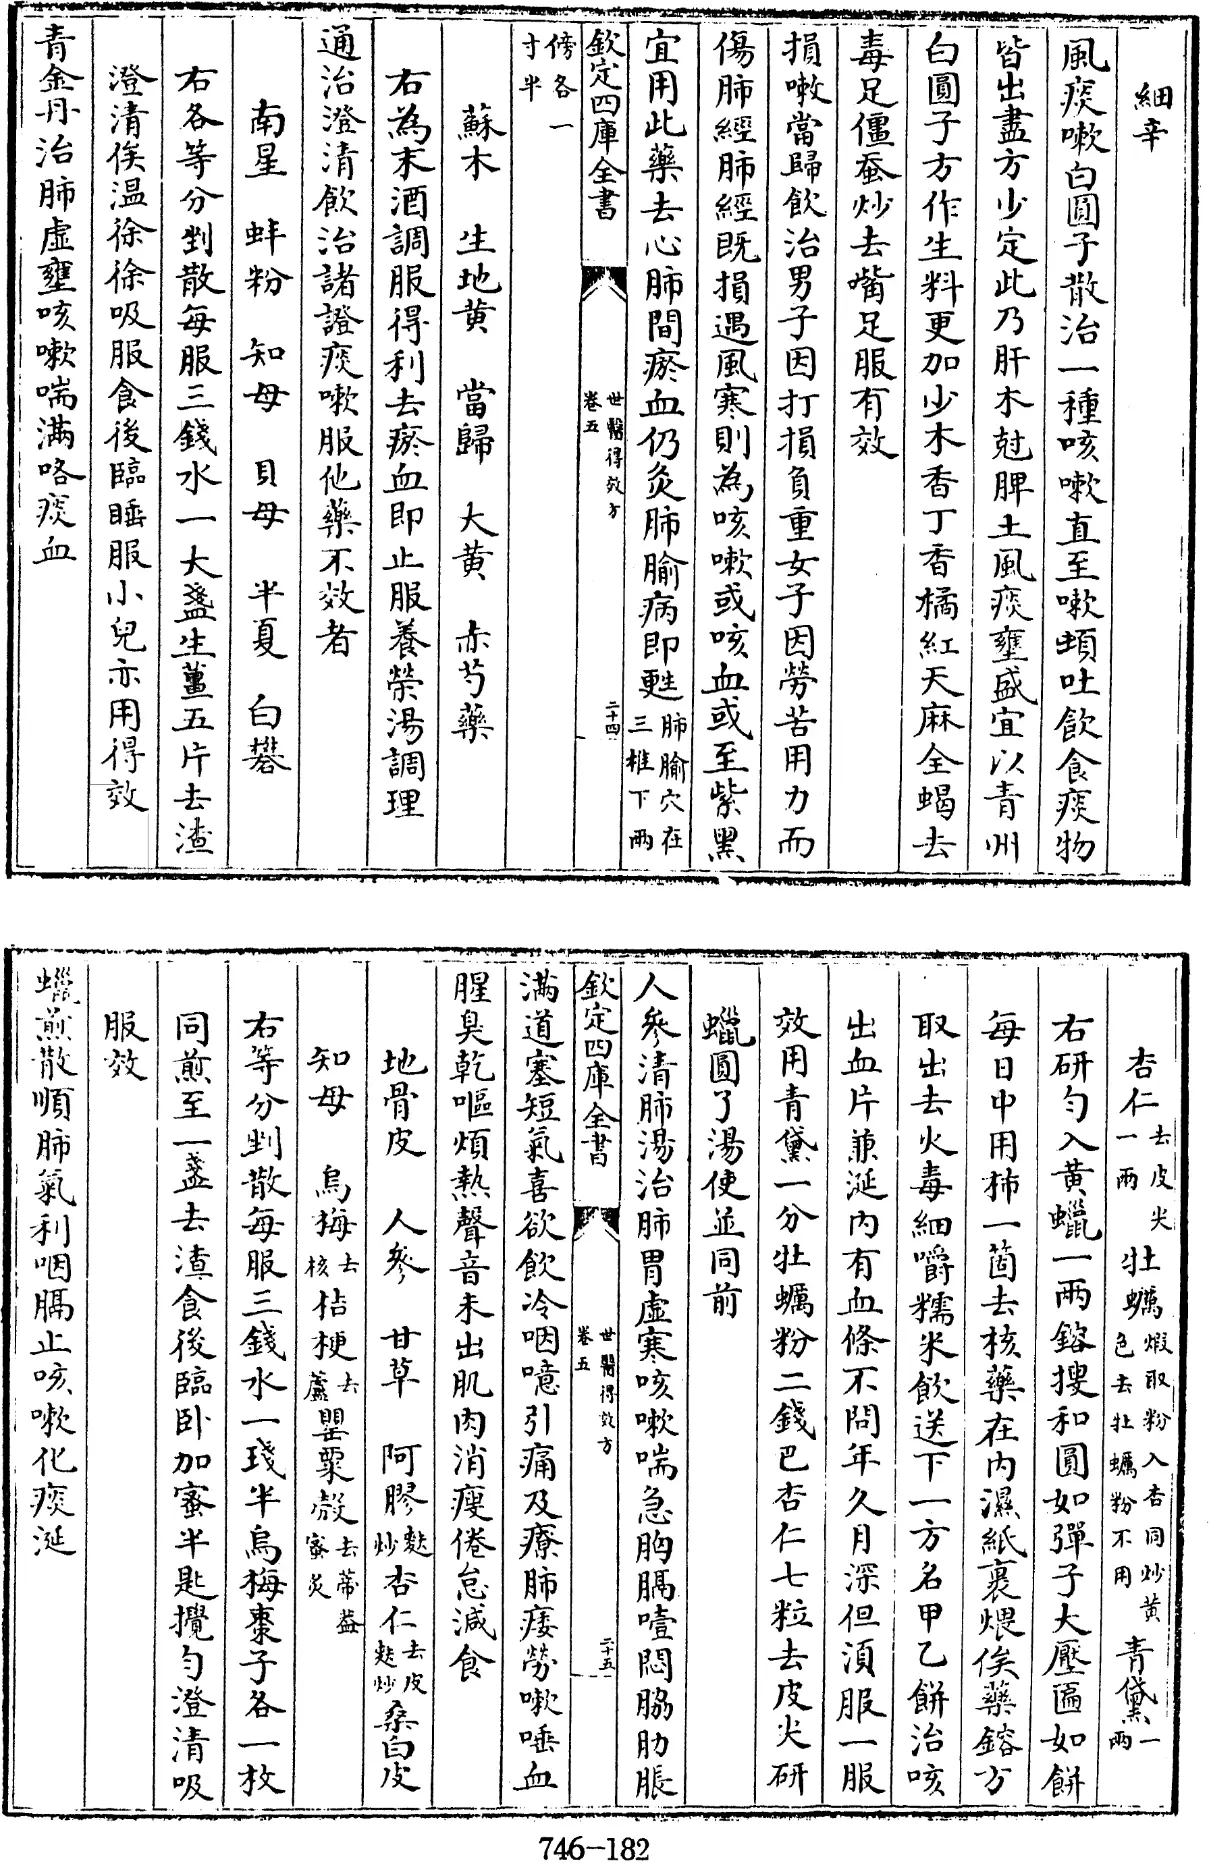 細辛
風痰嗽白圓子散治一種咳嗽直至嗽頓吐飲食痰物
皆出盡方少定此乃肝木尅脾土風痰壅盛宜以青州
白圓子方作生料更加少木香丁香橘紅天麻全蝎去
毒足僵蚕炒去嘴足服有效
損嗽當歸飲治男子因打損負重女子因勞苦用力而
傷肺經肺經既損遇風寒則為咳嗽或咳血或至紫黑
宜用此藥去心肺間瘀血仍灸肺腧病即甦肺腧穴在三椎下兩
欽定四庫全書
世醫得效方
卷五
二十四
傍各一寸半
蘇木 生地黄 當歸 大黄 赤芍藥
右為末酒調服得利去瘀血即止服養榮湯調理
通治澄清飲治諸證痰嗽服他藥不效者
南星 蚌粉 知母 貝母 半夏 白礬
右各等分剉散每服三錢水一大盞生薑五片去渣
澄清俟温徐徐吸服食後臨睡服小兒亦用得效
青金丹治肺虛壅咳嗽喘滿咯痰血
杏仁去皮尖一兩 牡蠣煅取粉入杏同炒黄色去牡蠣粉不用 青黛一兩
右研勻入黄蠟一兩鎔搜和圓如彈子大壓匾如餅
每日中用柿一箇去核藥在内濕紙裹煨俟藥鎔方
取出去火毒細嚼糯米飲送下一方名甲乙餅治咳
出血片兼涎内有血條不問年久月深但湏服一服
效用青黛一分牡蠣粉二錢巴杏仁七粒去皮尖研
蠟圓了湯使並同前
人參清肺湯治肺胃虛寒咳嗽喘急胸膈噎悶脇肋脹
欽定四庫全書
世醫得效方
卷五
二十五
滿道塞短氣喜欲飲冷咽噫引痛及療肺痿勞嗽唾血
腥臭乾嘔煩熱聲音未出肌肉消瘦倦怠減食
地骨皮 人參 甘草 阿膠麩炒 杏仁去皮麩炒 桑白皮
知母 烏梅去核 桔梗去蘆 罌粟殻去蒂葢蜜炙
右等分剉散每服三錢水一琖半烏梅棗子各一枚
同煎至一盞去渣食後臨卧加蜜半匙攪勻澄清吸
服效
蠟煎散順肺氣利咽膈止咳嗽化痰涎
746-182